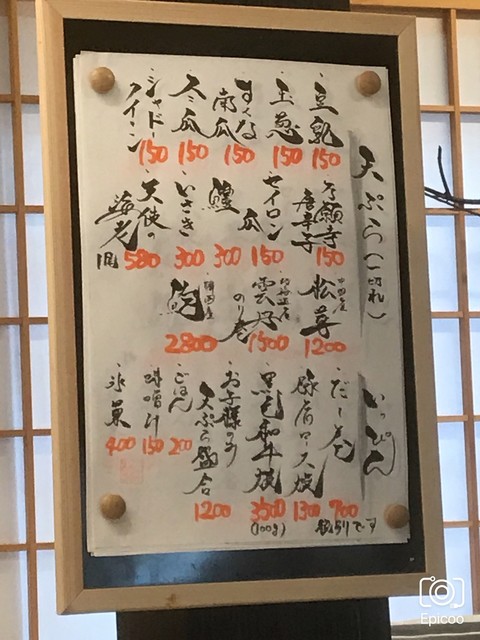 天ぷら(一切れ)
豆乳
150
玉葱
150
すくな
南瓜
150
冬瓜
150
シャドー
クイーン
150
万願寺
唐辛子
150
セイロン
瓜
150
鱧
300
いさき
300
天使の
海老
580
松茸
1200
雲丹
のり巻
1500
鮑
2800
いっぴん
だし巻
700
豚肩ロース焼
1300
黒毛和牛焼
3500
(100g)
お子様の
天ぷら盛合
1200
ごはん
200
味噌汁
150
氷菓
400
税別です
Epicoo